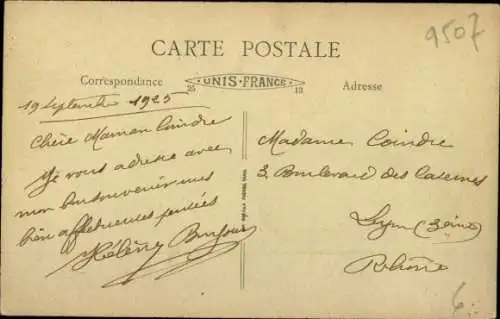 9507
CARTE POSTALE
Correspondance
25 UNIS-FRANCE 13
Adresse
19 Septembre 1925
Chère Maman Coindre
Je vous adresse avec
mon bon souvenir mes
bien affectueuses pensées
Hélène
Madame Coindre
3, Boulevard des Casernes
Lyon (3ème)
Rhône
6